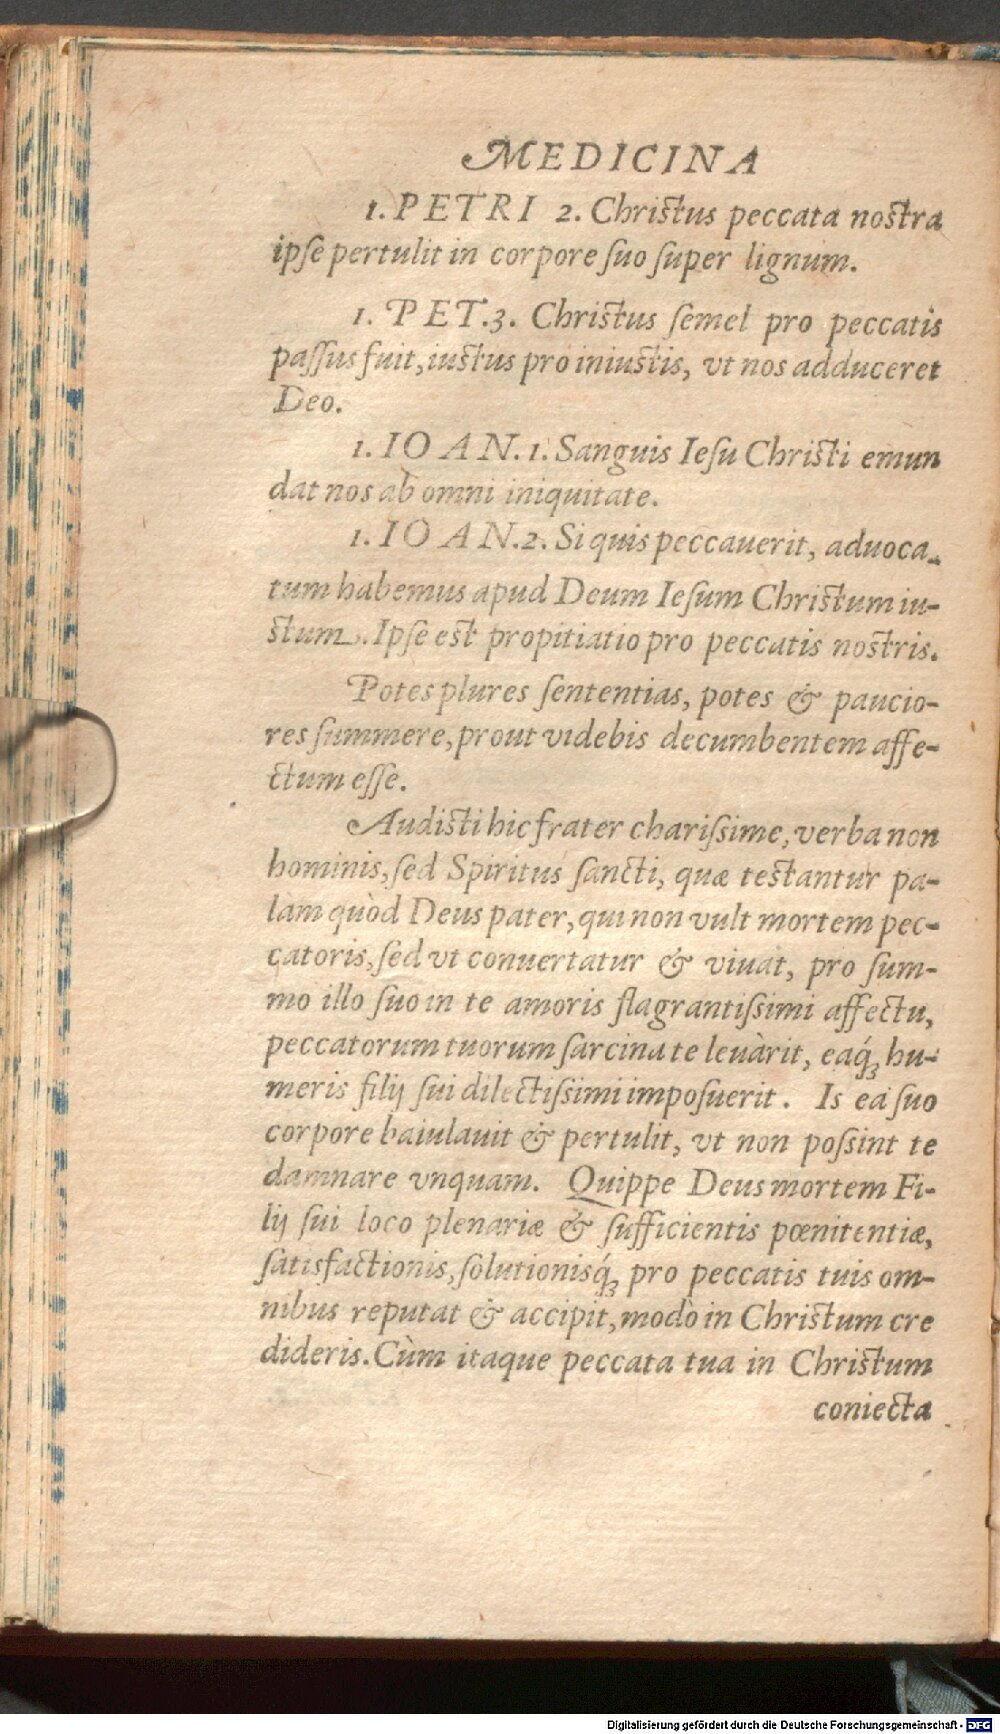 MEDICINA
1. PETRI 2. Christus peccata nostra
ipſe pertulit in corpore ſuo ſuper lignum.
1. PET.3. Christus ſemel pro peccatis
paſſus fuit, iustus pro iniustis, vt nos adduceret
Deo.
1. IOAN.1. Sanguis Ieſu Christi emun
dat nos ab omni iniquitate.
1. IOAN.2. Si quis peccauerit, aduoca-
tum habemus apud Deum Ieſum Christum iu-
stum. Ipſe est propitiatio pro peccatis nostris.
Potes plures ſententias, potes & paucio-
res ſummere, prout videbis decumbentem affe-
ctum eſſe.
Audisti hic frater chariſsime, verba non
hominis, ſed Spiritus ſancti, quæ testantur pa-
làm quòd Deus pater, qui non vult mortem pec-
catoris, ſed vt conuertatur & viuat, pro ſum-
mo illo ſuo in te amoris flagrantiſsimi affectu,
peccatorum tuorum ſarcina te leuàrit, eaq́ꝫ hu-
meris filij ſui dilectiſsimi impoſuerit. Is ea ſuo
corpore baiulauit & pertulit, vt non poſsint te
damnare vnquam. Quippe Deus mortem Fi-
lij ſui loco plenariæ & ſufficientis pœnitentiæ,
ſatisfactionis, ſolutionisq́ꝫ pro peccatis tuis om-
nibus reputat & accipit, modò in Christum cre
dideris. Cùm itaque peccata tua in Christum
coniecta
Digitalisierung gefördert durch die Deutsche Forschungsgemeinschaft - DFG